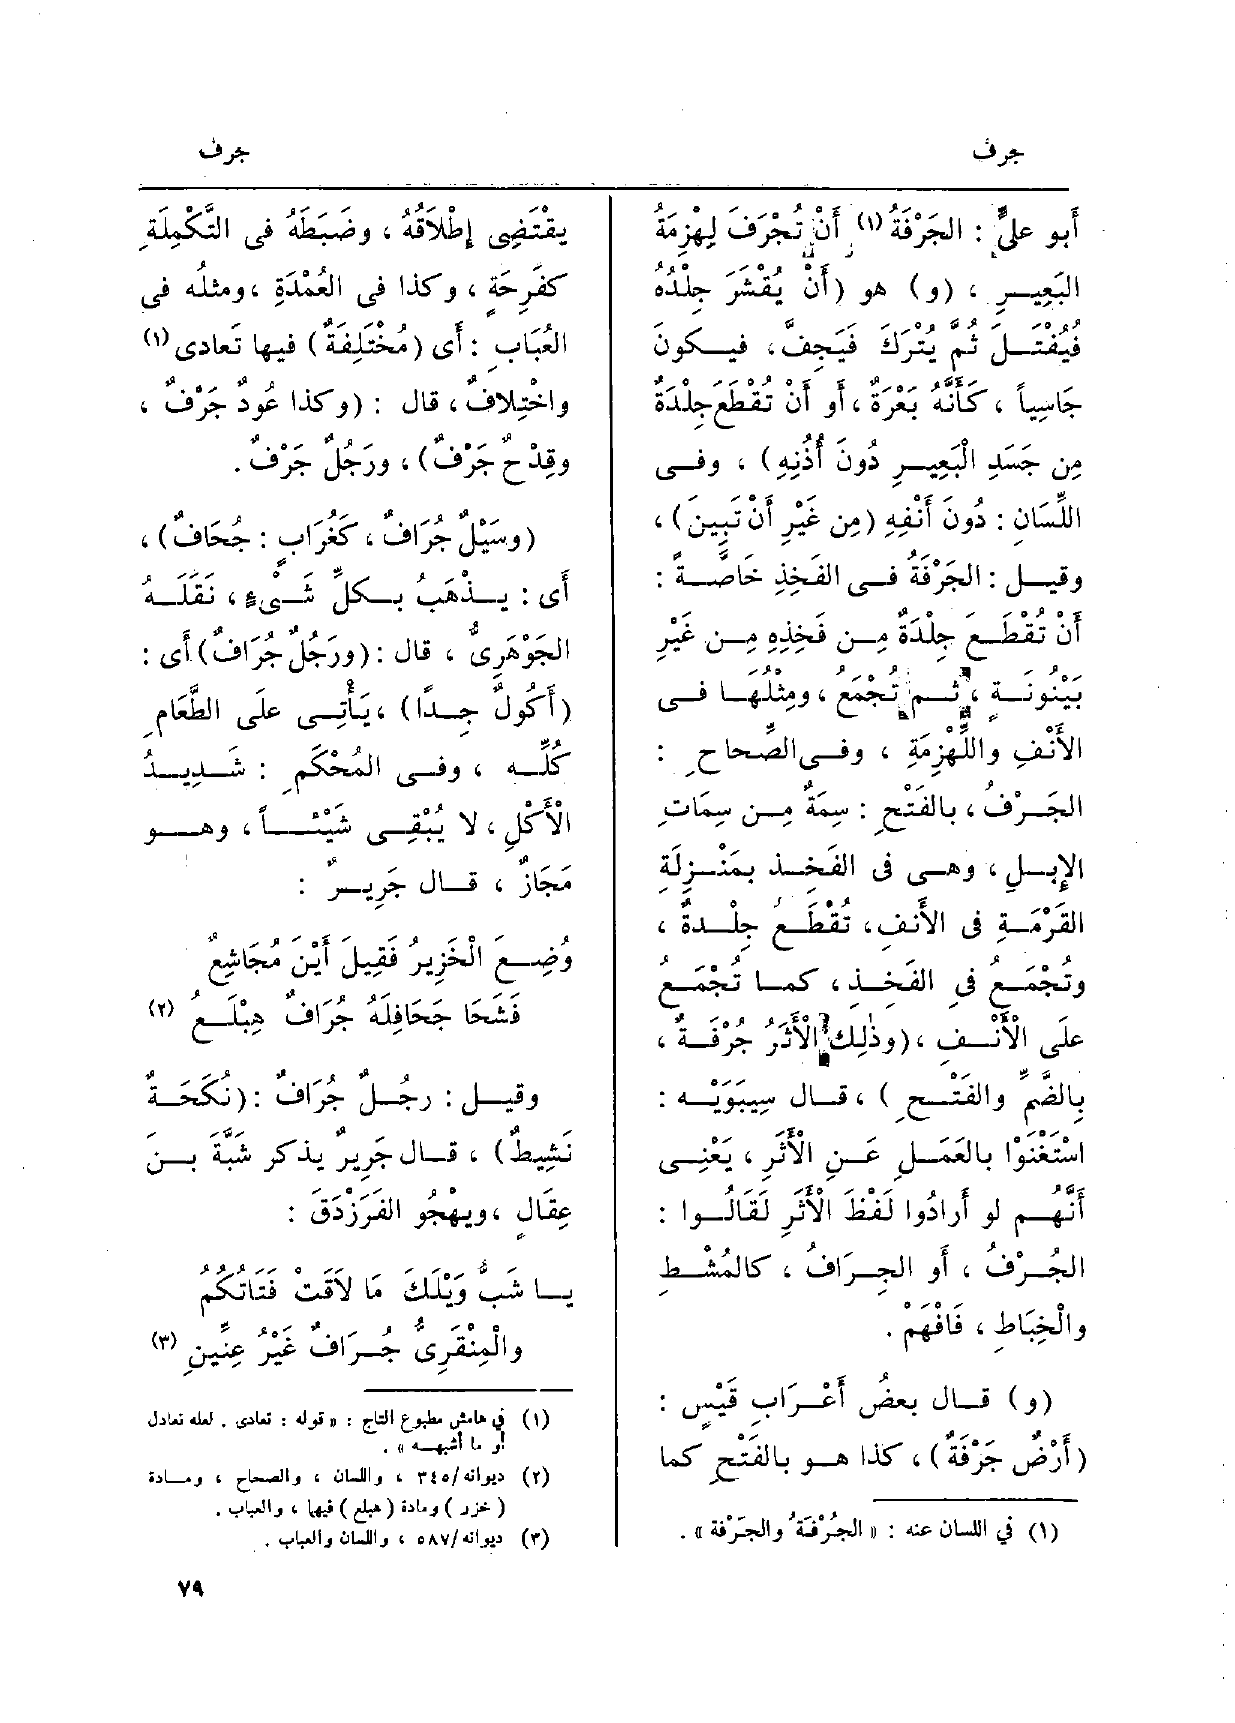 جرف
جرف
أبو علىٍّ : الجَرْفَةُ (١) أَنْ تُجْرَفَ لِهْزِمَةُ
البَعِيـرِ ، (و) هو (أَنْ يُقْشَرَ جِلْدُهُ
فيُفْتَـلَ ثُمَّ يُتْرَكَ فيَجِفَّ ، فيـكونَ
جَاسِياً ، كَأَنَّهُ بَعْرَةٌ ، أَو أَنْ تُقْطَعَ جِلْدَةٌ
مِن جَسَدِ الْبَعِيـرِ دُونَ أُذُنِهِ) ، وفـى
اللِّسَانِ : دُونَ أَنْفِهِ (مِن غَيْرِ أَنْ تَبِينَ) ،
وقيـل : الجَرْفَةُ فـى الفَخِذِ خاصَّـةً :
أَنْ تُقْطَـعَ جِلْدَةٌ مِـن فَخِذِهِ مِـن غَيْرِ
بَيْنُونـةٍ ، ثُـم تُجْمَعُ ، ومِثْلُهـا فـى
الأَنْفِ واللِّهْزِمَةِ ، وفـى الصِّحاحِ :
الجَـرْفُ ، بالفَتْحِ : سِمَةٌ مِـن سِمَاتِ
الإِبـلِ ، وهـى فى الفَخِـذ بمَنْـزِلَةِ
القَرْمَـةِ فى الأَنفِ ، تُقْطَـع جِلْـدةٌ ،
وتُجْمَـعُ فى الفَخِـذ ، كمـا تُجْمَـع
على الْأَنْـفِ ، (وذٰلِكَ الْأَثَرُ جُرْفَـةٌ ،
بِالضَّمِّ والفَتْـحِ ) ، قـال سِيبَوَيْـه :
اسْتَغْنَوْا بالعَمَـلِ عَـنِ الْأَثَرِ ، يَعْنِـى
أَنَّهُـم لو أَرادُوا لَفْظَ الْأَثَرِ لَقَالُـوا :
الجُـرْفُ ، أَو الجِـرَافُ ، كالمُشْـطِ
والْخِبَاطِ ، فَافْهَمْ .
(و) قـال بعضُ أَعْـرَابِ قَيْسٍ :
(أَرْضٌ جَرْفَةٌ) ، كذا هـو بالفَتْحِ كما
(١) في اللسان عنه : « الجُرْفَةُ والجَرْفة » .
يقْتَضِى إِطْلَاقُهُ ، وضَبَطَهُ فى التَّكْمِلَةِ
كفَرِحَةٍ ، وكذا فى العُمْدَةِ ، ومثلُه فى
العُبَابِ : أَى (مُخْتَلِفَةٌ) فيها تَعادى (١)
واخْتِلافٌ ، قال : (وكذا عُودٌ جَرْفٌ ،
وقِدْح جَرْفٌ) ، ورَجُلٌ جَرْفٌ .
(وسَيْلٌ جُرَافٌ ، كغُرَابٍ : جُحَافٌ) ،
أى : يـذْهَبُ بـكلِّ شـىْءٍ ، نَقَلَـهُ
الجَوْهَرِىُّ ، قال : (ورَجُلٌ جُرَافٌ) أى :
(أَكُولٌ جِـدًّا) ، يَأْتِـى علَى الطَّعَامِ
كُلِّـه ، وفـى المُحْكَمِ : شَـدِيـدُ
الْأَكْلِ ، لا يُبْقِـى شَيْئـاً ، وهـو
مَجَازٌ ، قـال جَرِيـرٌ :
وُضِـعَ الْخَزِيرُ فَقِيلَ أَيْنَ مُجَاشِعٌ
فَشَحَا جَحَافِلَهُ جُرَافٌ هِبْلَـعُ (٢)
وقيـل : رجُـلٌ جُرَافٌ : (نُكَحَةٌ
نَشِيطٌ) ، قـال جَرِيرٌ يذكر شَبَّةَ بـن
عِقَالٍ ، ويهْجُو الفَرَزْدَقَ :
يـا شَبُّ وَيْلَكَ مَا لَاقَتْ فَتَاتُكُمُ
والْمِنْقَرِىُّ جُـرَافٌ غَيْرُ عِنِّينِ (٣)
(١) في هامش مطبوع التاج : « قوله : تعادى . لعله تعادل
أو ما أشبهـه » .
(٢) ديوانه/٣٤٥ ، واللسان ، والصحاح ، ومـادة
( خزر ) ومادة ( هبلع ) فيها ، والعباب .
(٣) ديوانه/٥٨٧ ، واللسان والعباب .
٧٩